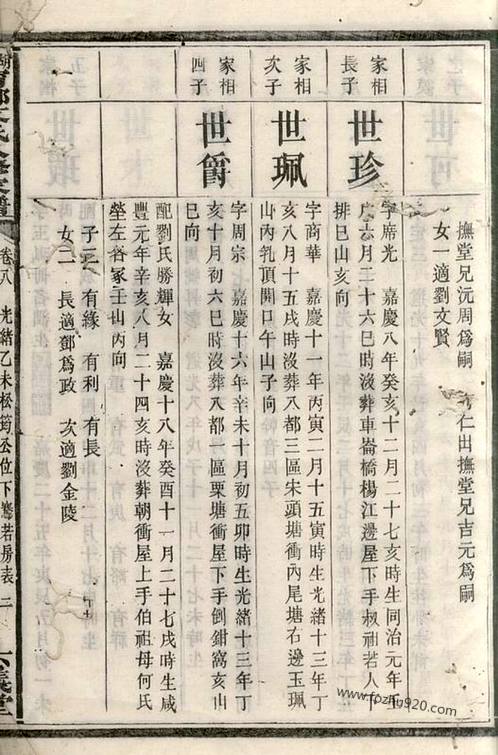 撫堂兄沅周為嗣
仁出撫堂兄吉元為嗣
女一 適劉文賢
家相
長子
世珍
字席光 嘉慶八年癸亥十二月二十七亥時生同治元年壬
六月二十六巳時沒葬車崙橋楊江邊屋下手叔祖若人下
排巳山亥向
家相
次子
世珮
字商華 嘉慶十一年丙寅二月十五寅時生光緒十三年丁
亥八月十五戌時沒葬八都三區宋頭塘衝內尾塘右邊玉珮
山內乳頂開口午山子向
家相
四子
世爵
字周宗 嘉慶十六年辛未十月初五卯時生光緒十三年丁
亥十月初六巳時沒葬八都一區栗塘衝屋下手倒鉗窩亥山
巳向
配劉氏勝輝女 嘉慶十八年癸酉十一月二十七戌時生咸
豐元年辛亥八月二十四亥時沒葬朝衝屋上手伯祖母何氏
塋左各冢壬山丙向
子三 有緣 有利 有長
女二 長適鄧為政 次適劉金陵
卷八 光緒乙未松筠公位下 若房表 二
義堂
www.fozhu920.com